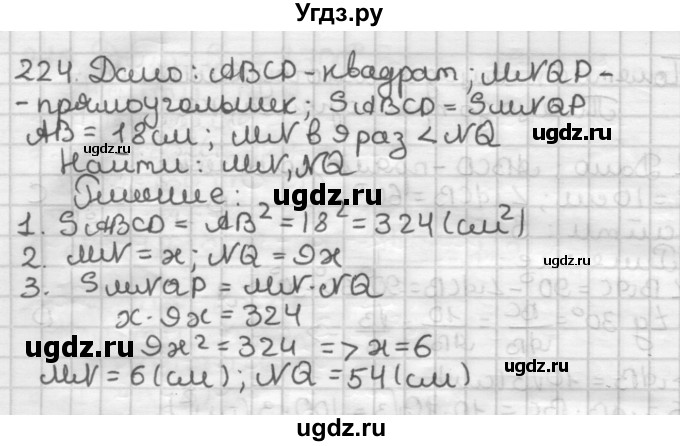 Угдз.ру
224. Дано: ABCD - квадрат; MNQP -
- прямоугольник; SABCD = SMNQP
AB = 18 см; MN в 9 раз < NQ
Найти: MN, NQ
Решение:
1. SABCD = AB² = 18² = 324 (см²)
2. MN = x; NQ = 9x
3. SMNQP = MN · NQ
x · 9x = 324
9x² = 324 => x = 6
MN = 6 (см); NQ = 54 (см)
ugdz.ru
ugdz.ru
ugdz.ru
ugdz.ru
ugdz.ru
ugdz.ru
ugdz.ru